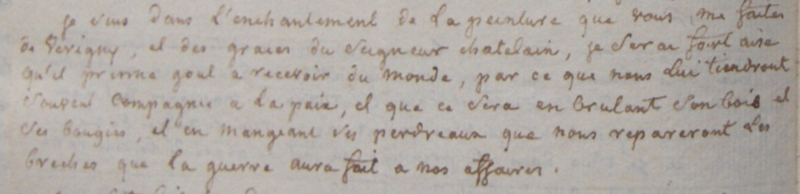 je suis dans l'enchantement de la peinture que vous me faites
de Perigny, et des graces du seigneur chatelain, je serai fort aise
qu'il prenne gout a recevoir du monde, par ce que nous lui tiendront
souvent compagnie a la paix, et que ce sera en brulant son bois et
ses bougies, et en mangeant ses perdreaux que nous repareront les
breches que la guerre aura fait a nos affaires.